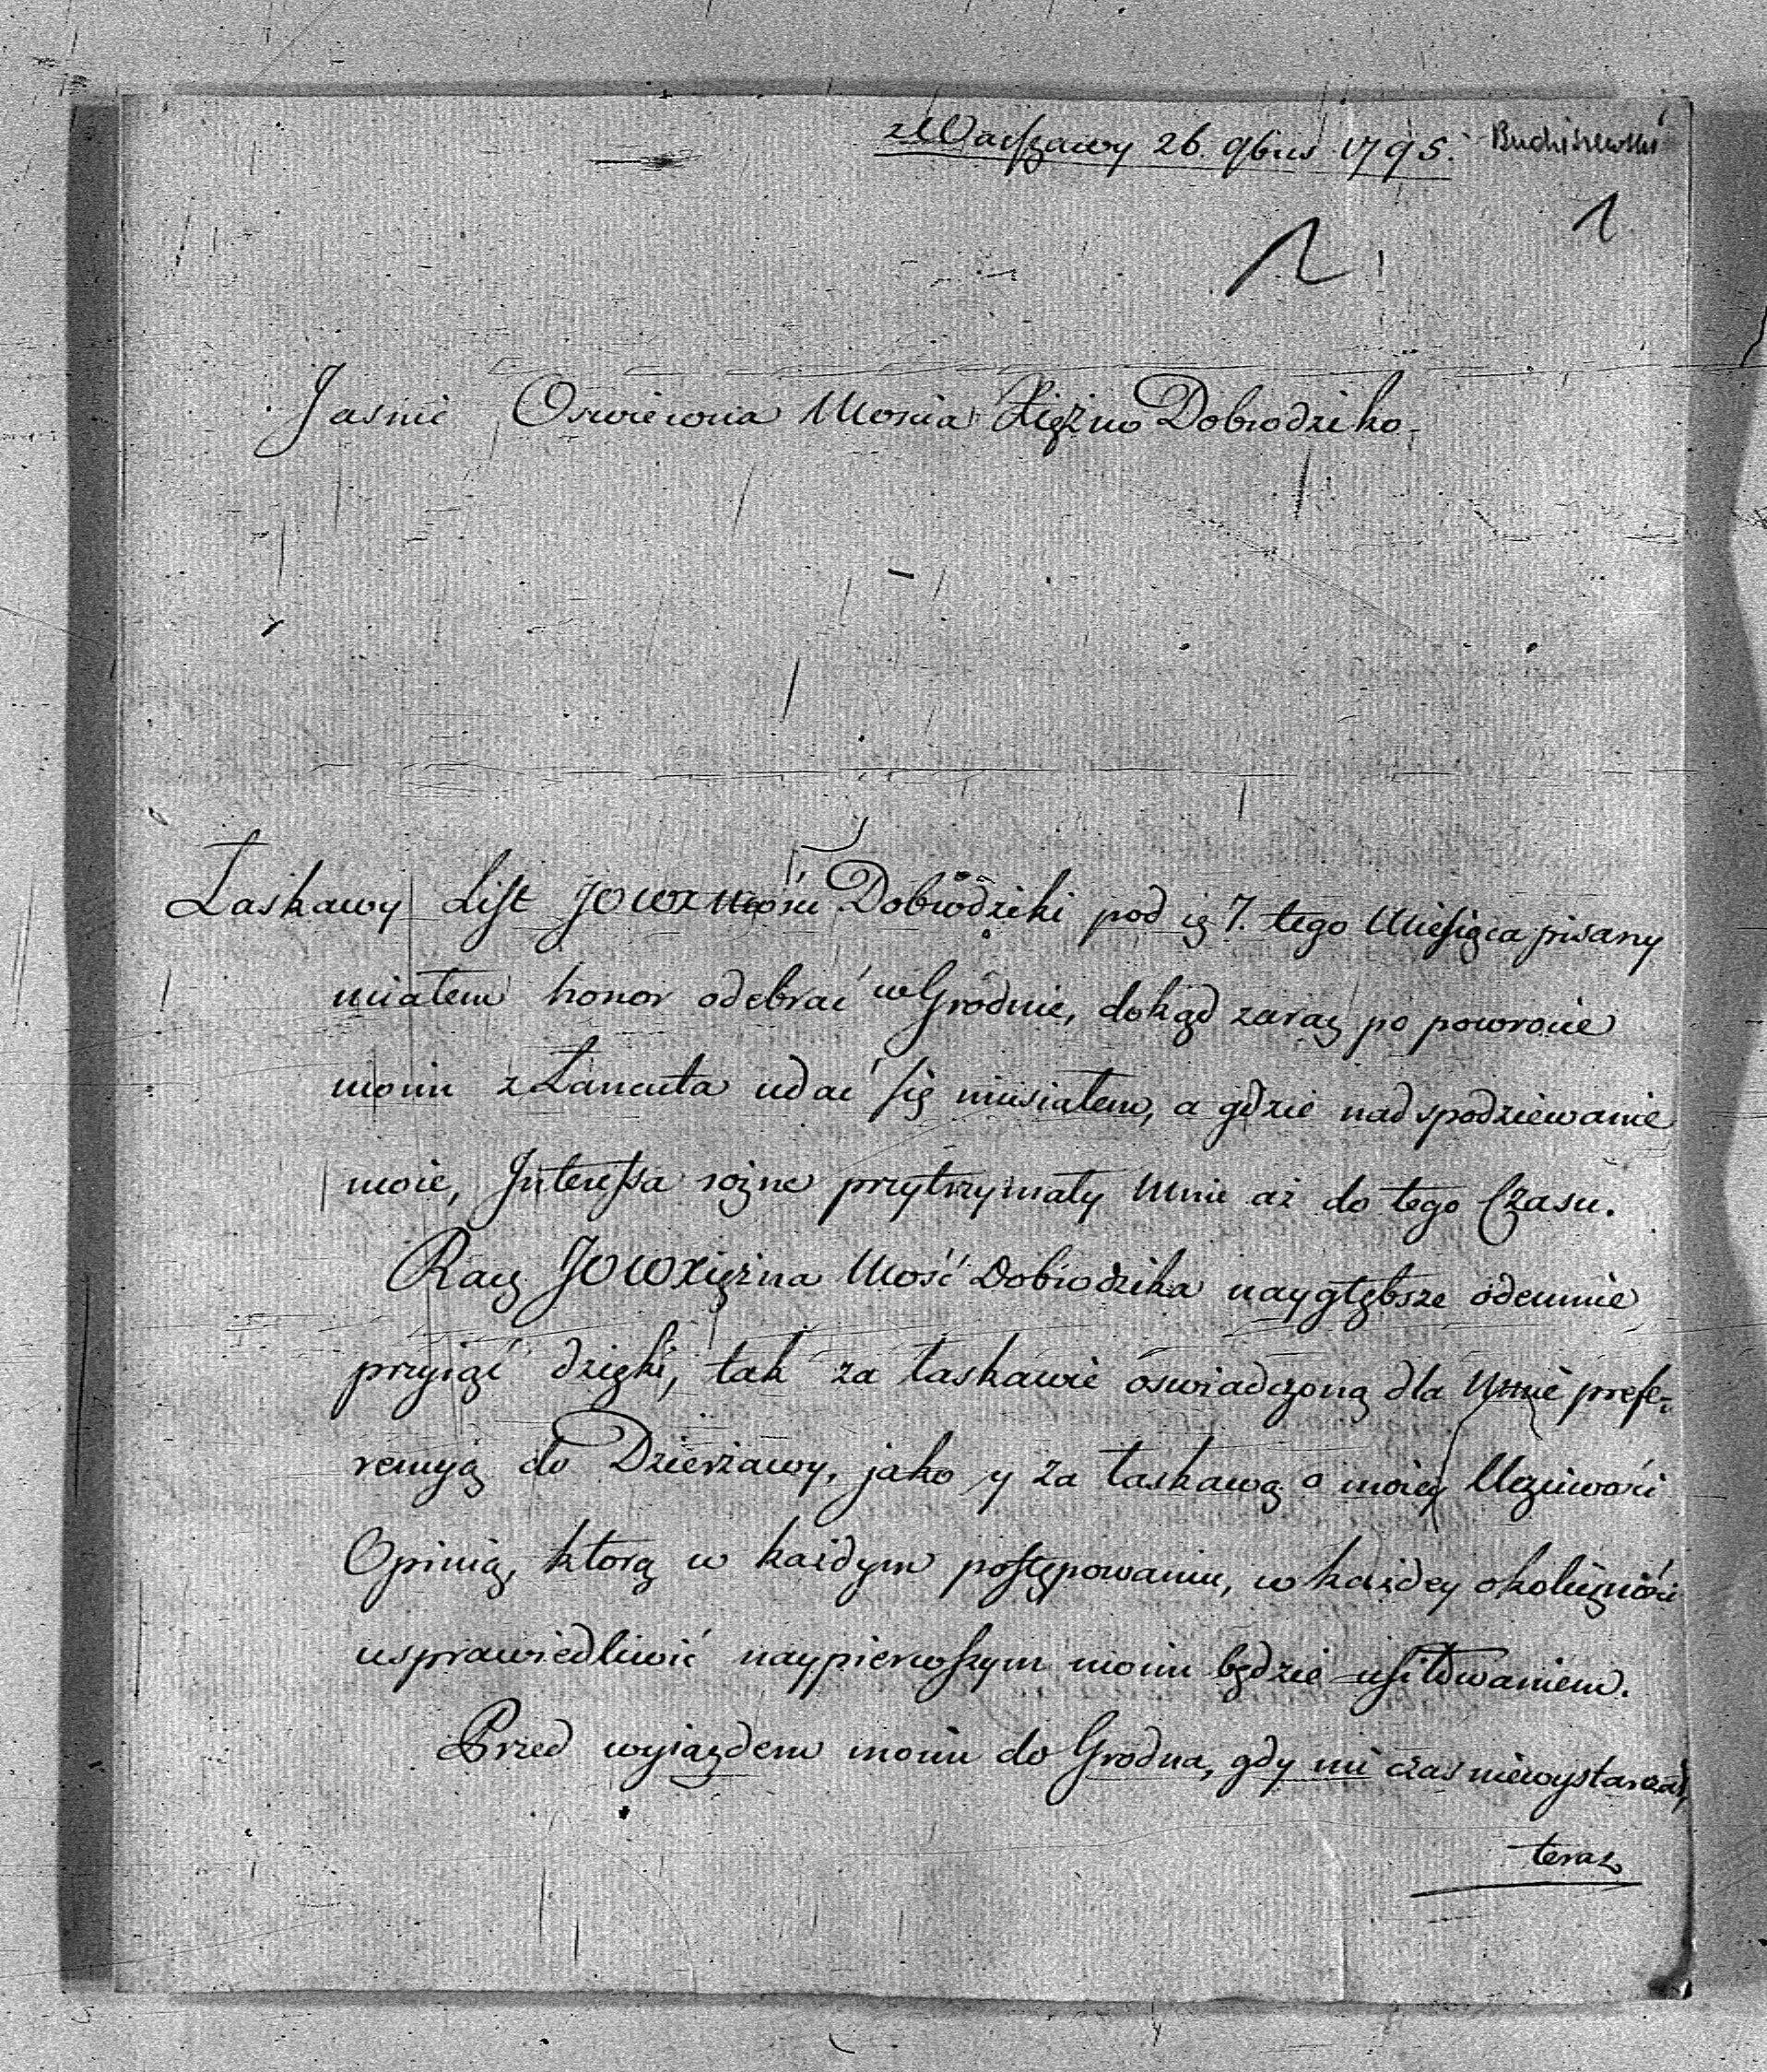 z Warszawy 26. 9bris 1795. Buchiszewski
1
1
Jasnie Oswiecona Moscia Xiężno Dobrodziko.
Łaskawy List JOWXMości Dobrodziki pod ią 7. tego Miesiąca pisany
miałem honor odebrać w Grodnie, dokąd zaraz po powrocie
moim z Łancuta udać się musiałem, a gdzie nad spodziewanie
moie, Interessa rożne przytrzymały mnie aż do tego Czasu.
Racz JOWXiężna Mość Dobrodzika naygłębsze odemnie
przyiąć dzięki, tak za łaskawie oswiadczoną dla Mnie prefe-
rencyą do Dzierżawy, jako y za łaskawą o moiey Uczciwości
Opinią, ktorą w każdym postępowaniu, w każdey okoliczności
usprawiedliwić naypierwszym moim będzie usiłowaniem.
Przed wyjazdem moim do Grodna, gdy mi czas niewystarczał,
teraz